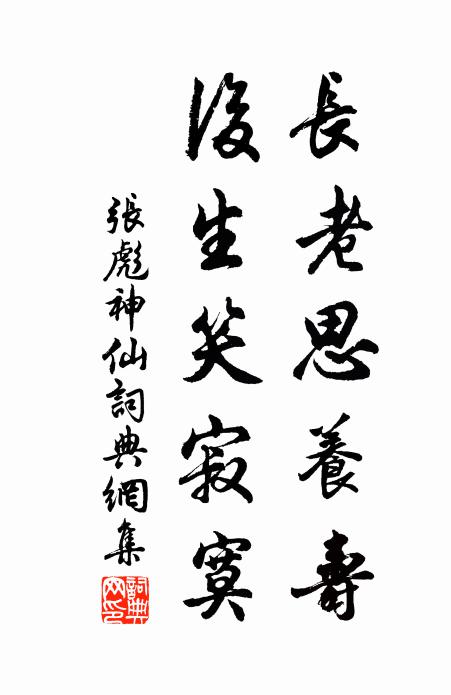 長老思養壽
後生笑寂寞
張彪神仙詞典網集
詞典
網印